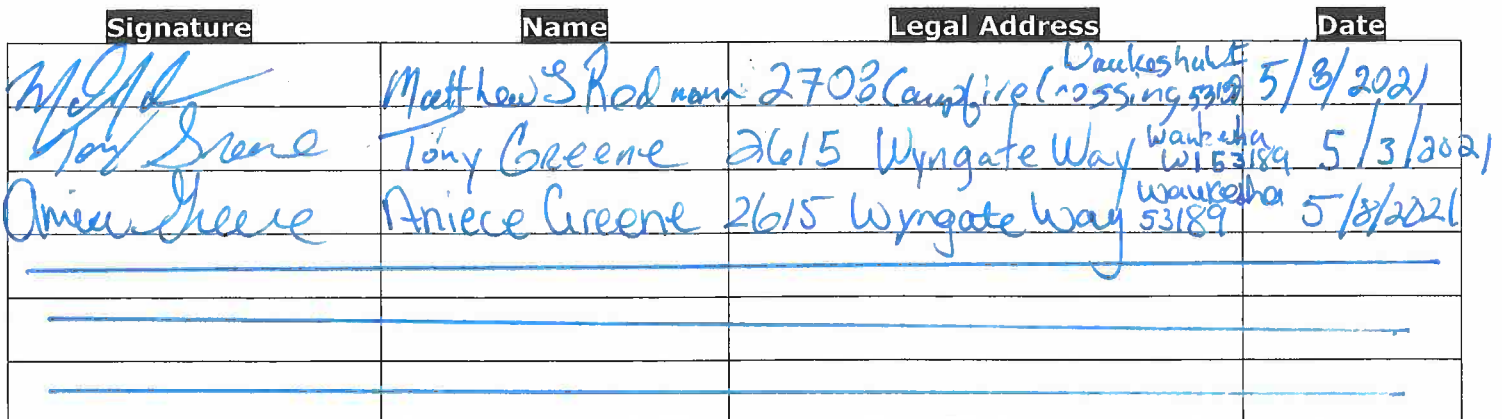 Signature Name Legal Address Date
Matthew S Redmann 2703 Campfire Crossing Waukesha WI 5/3/2021
Tony Greene Tony Greene 2615 Wyngate Way Waukesha WI 53189 5/3/2021
Aniece Greene Aniece Greene 2615 Wyngate Way Waukesha 53189 5/3/2021